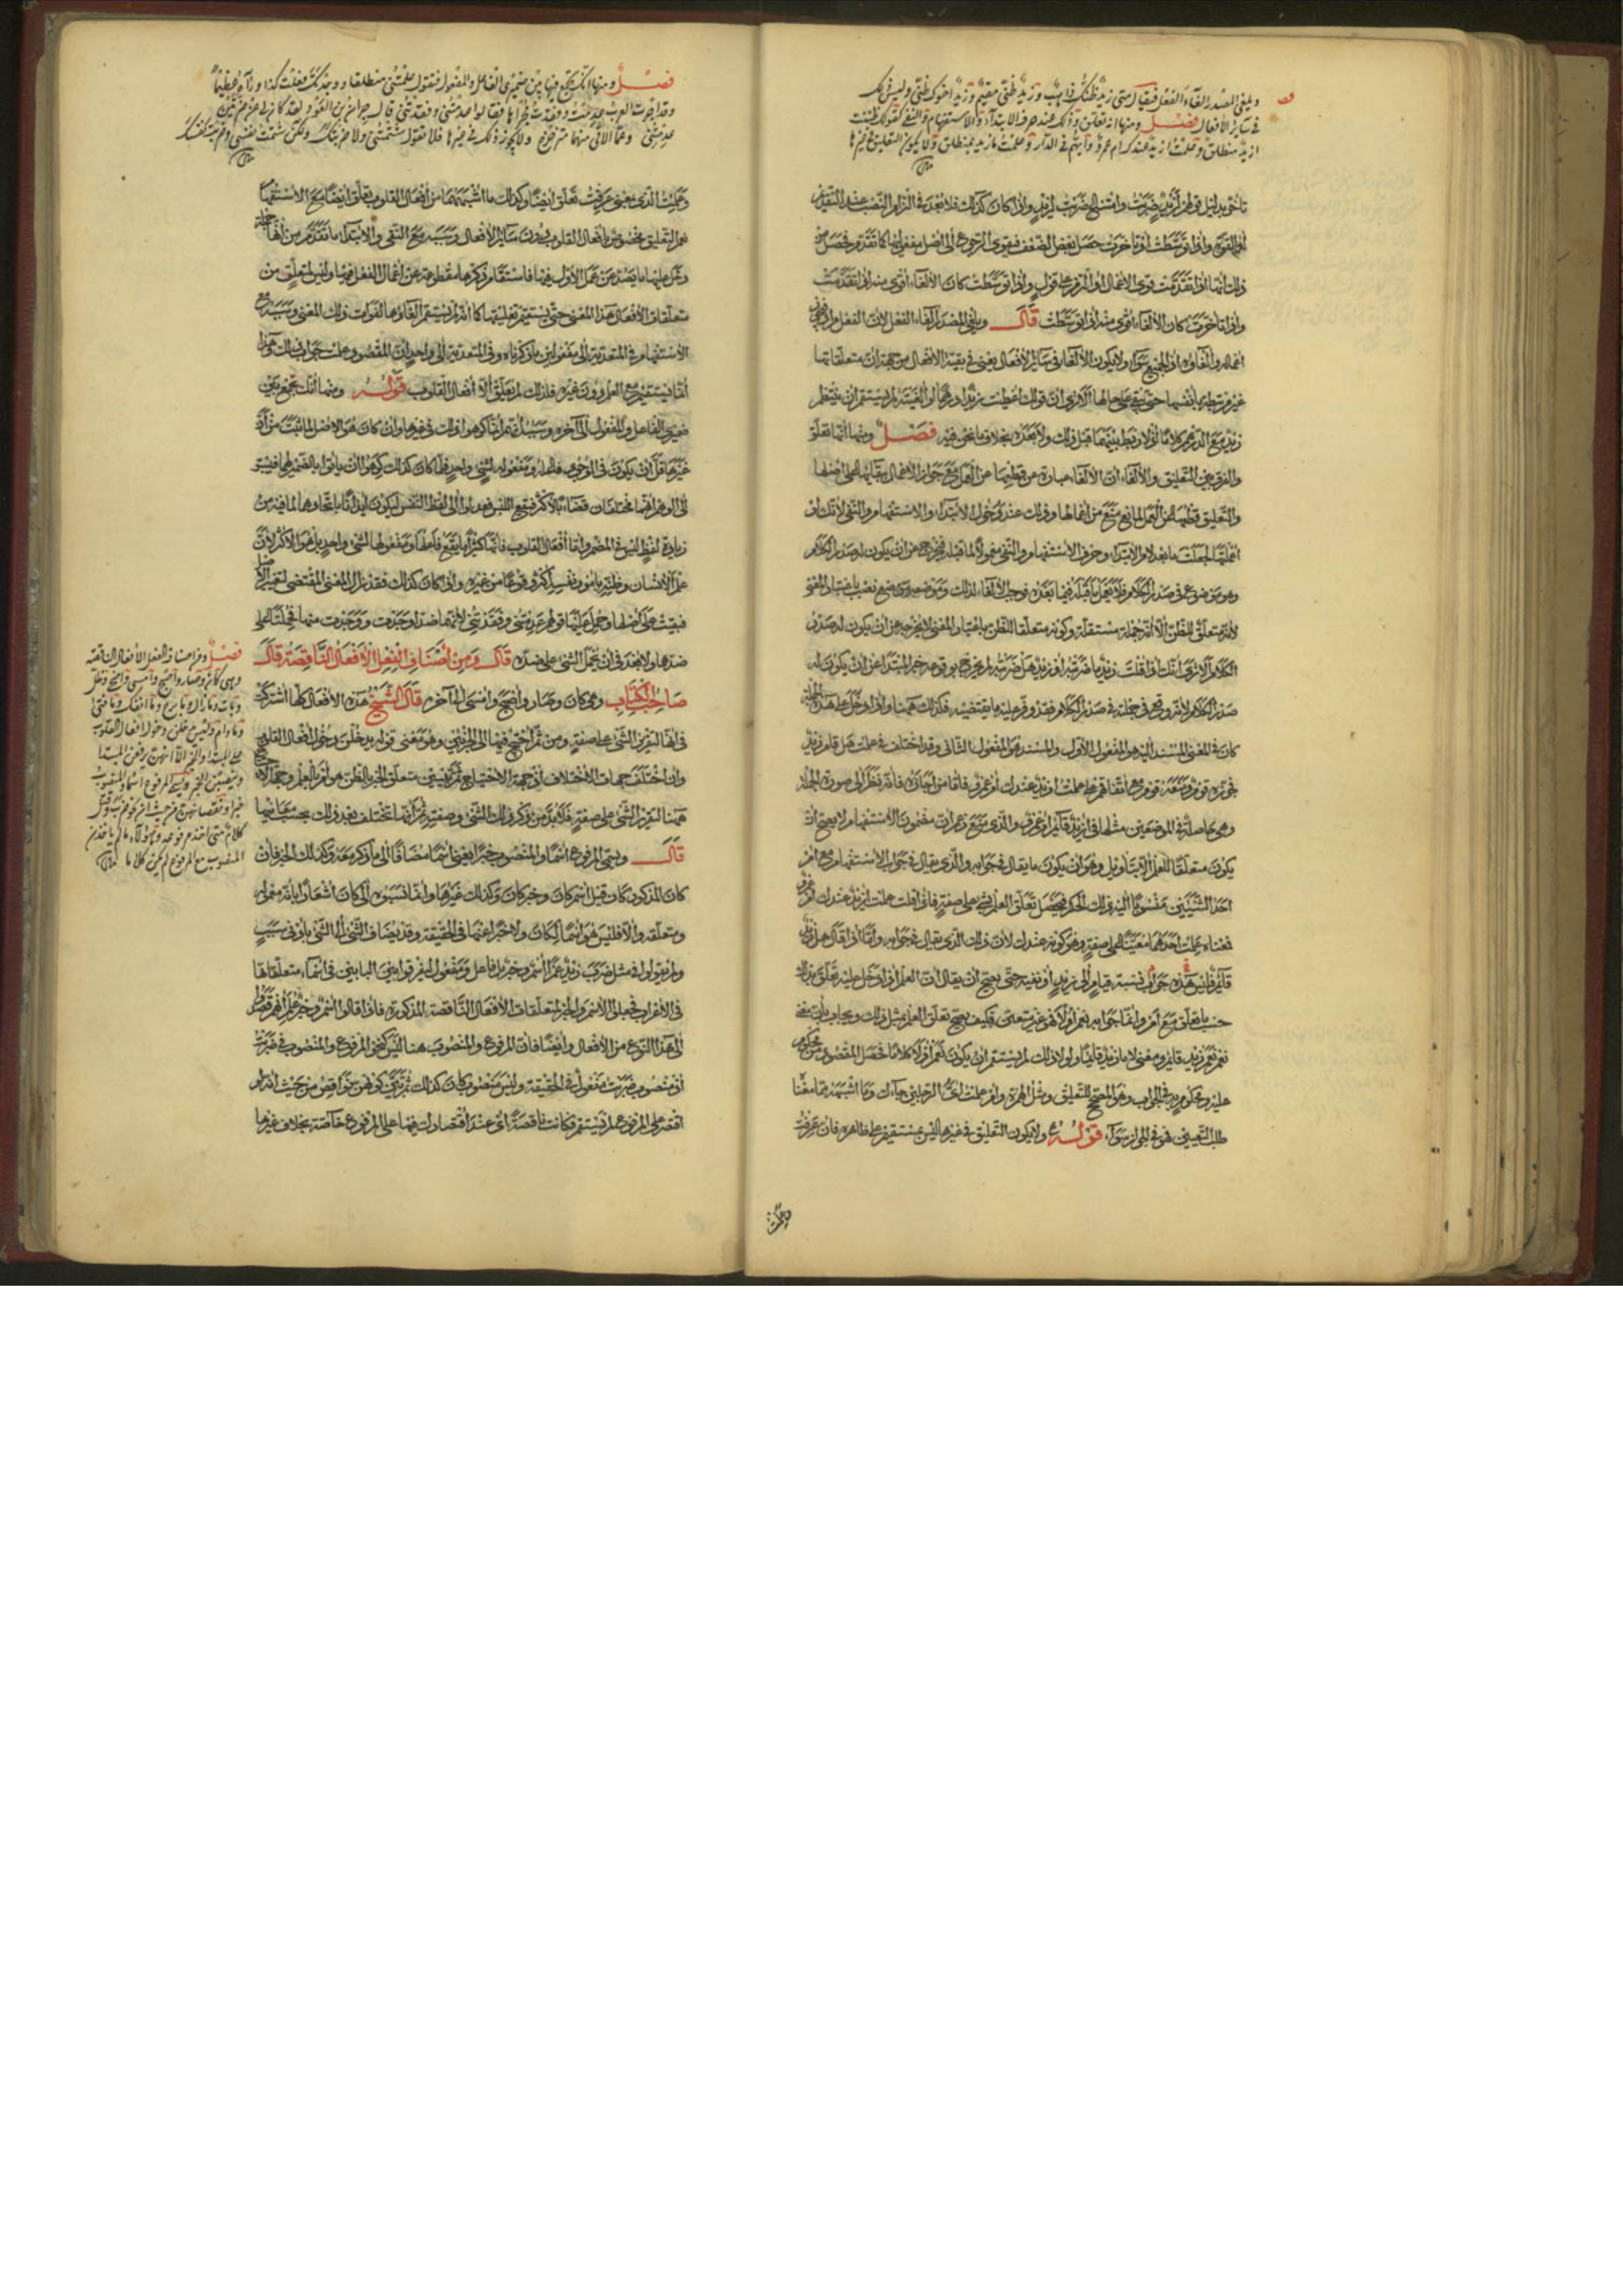 ويلغى المصدر الغاء الفعل فيقال متى زيد ظنك ذاهب وزيد ظنى مقيم وزيد اخوك ظنى وليس ذلك
فى سائر الأفعال فصل ومنها انه تعلق وذلك عند حرف الابتداء والاستفهام والنفى كقولك ظننت
لزيد منطلق وعلمت ازيد عندك ام عمرو وايهم فى الدار وعلمت ما زيد بمنطلق ولا يكون التعليق فى غيرها
تأخر بدليل قولهم لزيد ضربت وامتناع ضربت لزيد واذا كان كذلك فلا بعد فى التزام النصب عند التقديم
لقوته واذا توسطت او تأخرت حصل بعض الضعف فيقوى الرجوع الى اصل مفعوليها كما تقدم فحصل من
ذلك انها اذا تقدمت قوى الاعمال او التزم على قول واذا توسطت كان الالغاء اقوى منه اذا تقدمت
واذا تأخرت كان الالغاء اقوى منه اذا توسطت قال ويلغى المصدر الغاء الفعل لان الفعل
اعماله والغاؤه اذ الجميع سواء ولا يكون الالغاء فى سائر الأفعال يعنى فى بقية الافعال من جهة ان متعلقاتها
غير مرتبطة بانفسها حتى تبقى على حالها الا ترى ان قولك اعطيت زيدا درهما لو الغيته لم يستقم ان ينتظم
زيد مع الدرهم كلاما اذ لا ارتباط بينهما قبل ذلك ولا بعده بخلاف ما نحن فيه فصل ومنها انها تعلق
والفرق بين التعليق والالغاء ان الالغاء عبارة عن قطعها عن العمل مع جواز الاعمال بقائها على اصلها
والتعليق قطعها عن العمل لمانع منع من اعمالها وذلك عند دخول لام الابتداء والاستفهام والنفى لانك لو
اعملتها لجعلت ما بعد لام الابتداء وحرف الاستفهام والنفى معمولا لما قبله فيخرج عن ان يكون له صدر الكلام
وهو موضوع فى صدر الكلام فلا يعمل ما قبله فيما بعده فوجب الالغاء لذلك وموضعه موضع نصب باعتبار المعنى
لانه متعلق للظن الا انه جملة مستقلة وكونه متعلقا للظن باعتبار المعنى لا يخرجه عن ان يكون له صدر
الكلام الا ترى انك اذا قلت زيد ما ضربته او زيد هل ضربته لم يخرج بوقوعه خبر المبتدا عن ان يكون له
صدر الكلام لانه وقع فى جملة فى صدر الكلام فقد وفر عليه ما يقتضيه فكذلك ههنا واذا دخل على هذه الجملة
كان فى المعنى المسند اليه هو المفعول الاول والمسند هو المفعول الثانى وقد اختلف فى علمت هل قام زيد
فجوزه قوم ومنعه قوم مع اتفاقهم على علمت ازيد عندك ام عمرو فاما من اجازه فانه نظر الى صورة الجملة
وهى حاصلة فى الموضعين مثلها فى ازيد قائم ام عمرو والذى منع زعم ان مضمون الاستفهام لا يصح ان
يكون متعلقا للعلم الا بتأويل وهو ان يكون ما يقال فى جوابه والذى يقال فى جواب الاستفهام مع ام
احد الشيئين منسوبا اليه ذلك الحكم فيحصل تعلق العلم بشئ على صفة فاذا قلت علمت ازيد عندك ام عمرو
فمعناه علمت احدهما معينا على صفة وهو كونه عندك لان ذلك الذى يقال فى جوابه واما اذا قال هل زيد
قائم فليس هذه جواب نسبة قيام الى زيد او نفيه حتى يصح ان يقال ان العلم اذا دخل عليه تعلق بذلك
حسب ما تعلق مع ام وانما جوابه نعم او لا فهو غير متعين فكيف يصح تعلق العلم بمثل ذلك ويجاب بان معنى
نعم نعم زيد قايم ومعنى لا ما زيد قايما ولولا ذلك لم يستقم ان يكون نعم او لا كلاما فحصل المقصود من محكوم
عليه ومحكوم به فى الجواب وهو المصحح للتعليق ومثل الهمزة وام علمت اى الرجلين جاءك وما اشبهه مما معنا
طلب التعيين فهو فى الجواز سواء قوله ولا يكون التعليق فى غيرها ليس بمستقيم على ظاهره فان عرفت
وعلمت
فصل ومنها انك تجمع فيها بين ضميرى الفاعل والمفعول فتقول علمتنى منطلقا ووجدتك فعلت كذا ورآه عظيما
وقد اجرت العرب عدمت وفقدت مجراها فقالوا عدمتنى وفقدتنى قال جران العود لقد كان لى عن ضرتين
عدمتنى وعما الاقى منهما متزحزح ولا يجوز ذلك فى غيرها فلا تقول شتمتنى ولا ضربتك ولكن شتمت نفسى وضربت نفسك
وعلمت الذى بمعنى عرفت تعلق ايضا وكذلك ما اشبههما من افعال القلوب تعلق ايضا مع الاستفهام
نعم التعليق مخصوص بافعال القلوب دون سائر الأفعال وسببه مع النفى والابتداء ما تقدم من انها جملة
دخل عليها ما يصد عن عمل الأول فيها فاستقام ذكرها مقطوعة عن اعمال الفعل فيها وليس لمتعلق من
متعلقات الأفعال هذا المعنى حتى يستقيم تعليقها كما انه لم يستقم الغاؤها لفوات ذلك المعنى وسببه مع
الاستفهام فى المتعدية الى مفعولين ما ذكرناه وفى المتعدية الى واحد ان المقصود علمت جواب ذلك وهذا
انما يستقيم مع العلم دون غيره فلذلك لم يعلق الا افعال القلوب قوله ومنها انك تجمع بين
ضميرى الفاعل والمفعول الى آخره وسببه انهم انما كرهوا ذلك فى غيرها وان كان هو الاصل لما ثبت من ان
غيرها قل ان يكون فى الوجود فاعله ومفعوله لشئ واحد فلما كان كذلك كرهوا ان يأتوا بالضميرين لهما فيسبق
الى الوهم انهما مختلفان قضاء بالاكثر فيقع اللبس فعدلوا الى لفظ النفس ليكون ايذانا باتحادهما لما فيه من
زيادة لفظ ليس فى المضمر واما افعال القلوب فانها كثيرا ما يقع فاعلها ومفعولها لشئ واحد بل هو الاكثر لان
علم الانسان وظنه بامور نفسه اكثر وقوعا من غيره واذا كان كذلك فقد زال المعنى المقتضى لتغيير الاصل
فبقيت على اصلها وحمل عليها قولهم عدمتنى وفقدتنى لانهما ضد وجدت ووجدت منها فحملتا على
ضدها ولا بعد فى ان يحمل الشئ على ضده قال ومن اصناف الفعل الافعال الناقصة قال
صاحب الكتاب وهى كان وصار واصبح وامسى الى آخره قال الشيخ هذه الافعال كلها اشتركت
فى انها لتقرير الشئ على صفة ومن ثم احتيج فيها الى الجزئين وهو معنى قوله يدخلن دخول افعال القلوب
وان اختلفت جهات الاختلاف اذ جهة الاحتياج ثم تبيين متعلق الخبر بالظن هو ام بالعلم وجهة الاحتياج
ههنا لتقرير الشئ على صفة فلا بد من ذكر ذلك الشئ وصفته ثم انها تختلف بعد ذلك بحسب معانيها
قال ويسمى المرفوع اسما والمنصوب خبرا يعنى اسما مضافا الى ما ذكر معه وكذلك الخبر فان
كان المذكور كان قيل اسم كان وخبر كان وكذلك غيرها وانما نسبوه الى كان اشعارا بانه معموله
ومتعلقه والا فليس هو اسما لكان ولا خبرا عنها فى الحقيقة وقد يضاف الشئ الى الشئ بادنى سبب
ولم يقولوا فى مثل ضرب زيد عمرا اسم وخبر بل فاعل ومفعول ليفرقوا بين البابين فى اسماء متعلقاتها
فى الاعراب فجعلوا الاسم والخبر لمتعلقات الأفعال الناقصة المذكورة فاذا قالوا اسم وخبر علم انهم قصدوا
الى هذا النوع من الأفعال وايضا فان المرفوع والمنصوب هنا ليس كنحو المرفوع والمنصوب فى ضربت
اذ منصوب ضربت مفعول فى الحقيقة وليس منصوب كان كذلك ثم تبين كونهن نواقص من حيث انه لو
اقتصر على المرفوع لم يستقم فكانت ناقصة اى عند اقتصارك فيها على المرفوع خاصة بخلاف غيرها
فصل ومن اصناف الفعل الأفعال الناقصة
وهى كان وصار واصبح وامسى واضحى وظل
وبات وما زال وما برح وما انفك وما فتئ
وما دام وليس يدخلن دخول افعال القلوب
على المبتدا والخبر الا انهن يرفعن المبتدا
وينصبن الخبر ويسمى المرفوع اسما والمنصوب
خبرا ونقصانهن من حيث ان نحو ضرب وقتل
كلام متى اخذ مرفوعه وهؤلاء ما لم يأخذن
المنصوب مع المرفوع لم يكن كلاما